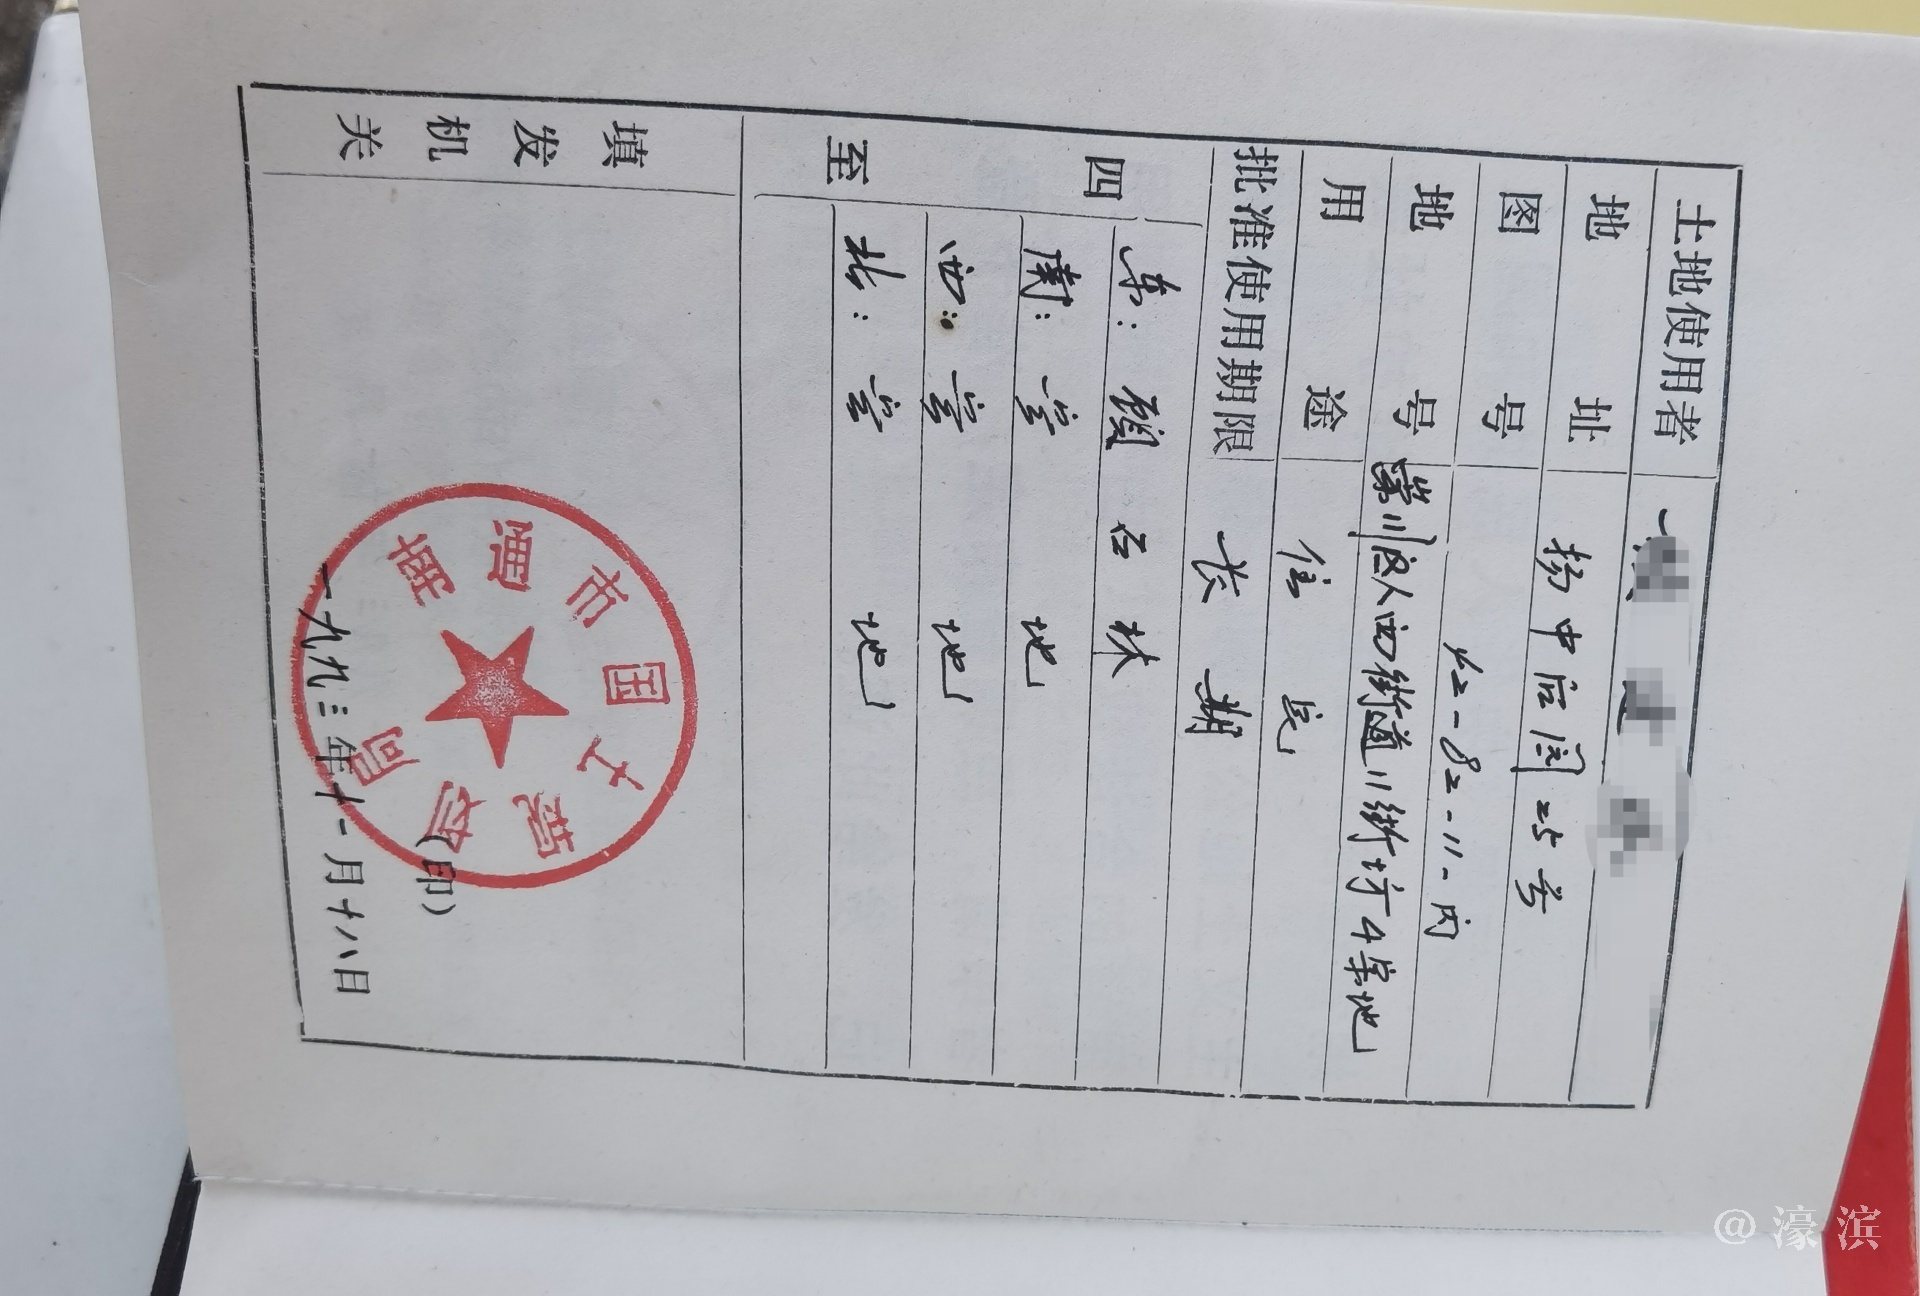 土地使用者
地址 扬中后园25号
图号 42-82-11-丙
地号 崇川区人西街道11街坊4宗地
用途 住宅
批准使用期限 长期
四至
东：顾 林
南：空地
西：空地
北：空地
填发机关
南通市国土管理局
（印）
一九九三年十一月十八日
@濠滨